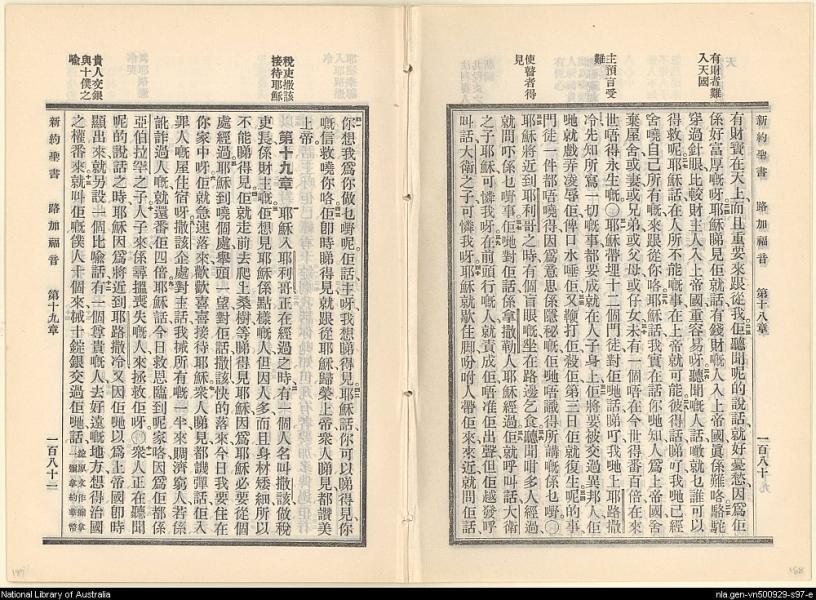 有財者難
入天國
主預言受
難
使瞽者得
見
新約聖書 路加福音 第十八章 一百八十
有財寶在天上、而且重要來跟從我、佢聽聞呢的說話、就好憂愁、因爲佢
係好富厚嘅呀、耶穌睇見佢就話、有錢財嘅人入上帝國、眞係難咯、駱駝
穿過針眼、比較財主人入上帝國重容易呀、聽聞嘅人話、噉就乜誰可以
得救呢、耶穌話、在人所不能嘅事、在上帝就可能、彼得話、睇吓、我哋已經
舍嘵自己所有嘅、來跟從你咯、耶穌話、我實在話你哋知、人爲上帝國舍
棄屋舍、或妻、或兄弟、或父母、或仔女、未有一個唔在今世得番百倍、在來
世唔得永生嘅、○耶穌帶埋十二個門徒、對佢哋話、睇吓、我哋上耶路撒
冷、先知所寫一切嘅事、都要成就在人子身上、佢將要被交過異邦人、佢
哋就戲弄凌辱佢、俾口水唾佢、又鞭打佢、殺佢、第三日佢就復生、呢的事
門徒一件都唔曉得、因爲意思係隱秘嘅、佢哋唔識得所講嘅係乜嘢、○
耶穌將近到耶利哥之時、有個盲眼嘅、坐在路邊乞食、聽聞咁多人經過、
就問吓係乜嘢事、佢哋對佢話、係拿撒勒人耶穌經過、佢就呼叫話、大衛
之子耶穌、可憐我呀、在前頭行嘅人、就責成佢唔准佢出聲、但佢越發呼
叫話、大衛之子、可憐我呀、耶穌就歇住脚、吩咐人帶佢來、來近就問佢話、
稅吏撒該
接待耶穌
貴人交銀
與十僕之
喩
你想我爲你做乜嘢呢、佢話、主呀、我想睇得見、耶穌話、你可以睇得見、你
嘅信救嘵你咯、佢卽時睇得見、就跟從耶穌、歸榮上帝、衆人睇見、都讚美
上帝、
第十九章 耶穌入耶利哥、正在經過之時、有一個人名叫撒該、做稅
吏長、係財主嘅、佢想見耶穌係點樣嘅人、但因人多、而且身材矮細、所以
不能睇得見、佢就走前去、爬上桑樹、等睇得見耶穌、因爲耶穌必要從個
處經過、耶穌到嘵個處、舉頭一望、對佢話、撒該、快的落來、今日我要住在
你家中呀、佢就急速落來、歡歡喜喜接待耶穌、衆人睇見、都譏彈話、佢入
罪人嘅屋住宿呀、撒該企處對主話、我將所有嘅一半、來賙濟窮人、若係
訛詐過人嘅、就還番佢四倍、耶穌話、今日救恩臨到呢家咯、因爲佢都係
亞伯拉罕之子、人子來、係尋搵喪失嘅人、來拯救佢呀、○衆人正在聽聞
呢的說話之時、耶穌因爲將近到耶路撒冷、又因佢哋以爲上帝國卽時
顯出來、就另設一個比喩話、有一個尊貴嘅人、去好遠嘅地方、想得治國
之權番來、就叫佢嘅僕人十個來、將十錠銀交過佢、哋話、
新約聖書 路加福音 第十九章 一百八十一
National Library of Australia
nla.gen-vn500929-s97-e